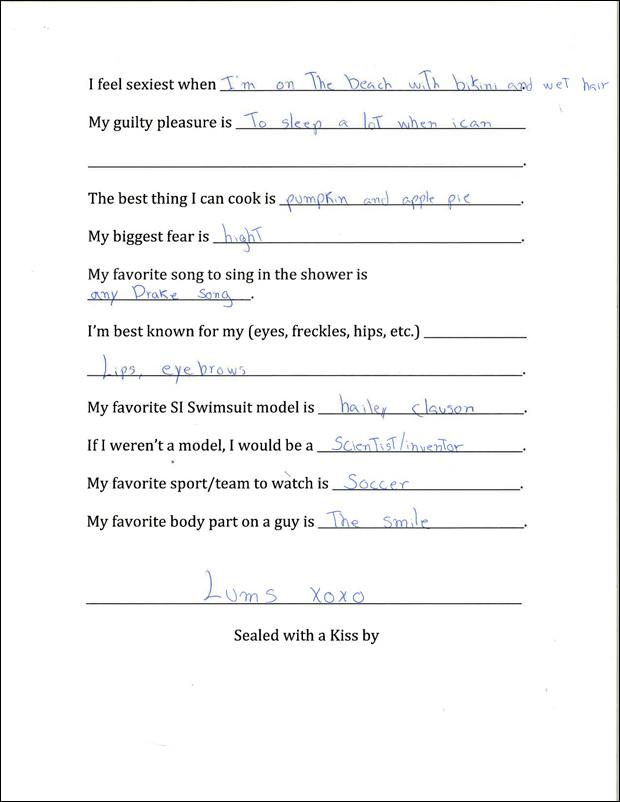 I feel sexiest when I'm on The beach with bikini and wet hair
My guilty pleasure is To sleep a lot when ican
.
The best thing I can cook is pumpkin and apple pie.
My biggest fear is hight.
My favorite song to sing in the shower is
any Drake song.
I'm best known for my (eyes, freckles, hips, etc.)
Lips, eyebrows.
My favorite SI Swimsuit model is hailey clauson.
If I weren't a model, I would be a Scientist/inventor.
My favorite sport/team to watch is Soccer.
My favorite body part on a guy is The smile.
Lums xoxo
Sealed with a Kiss by